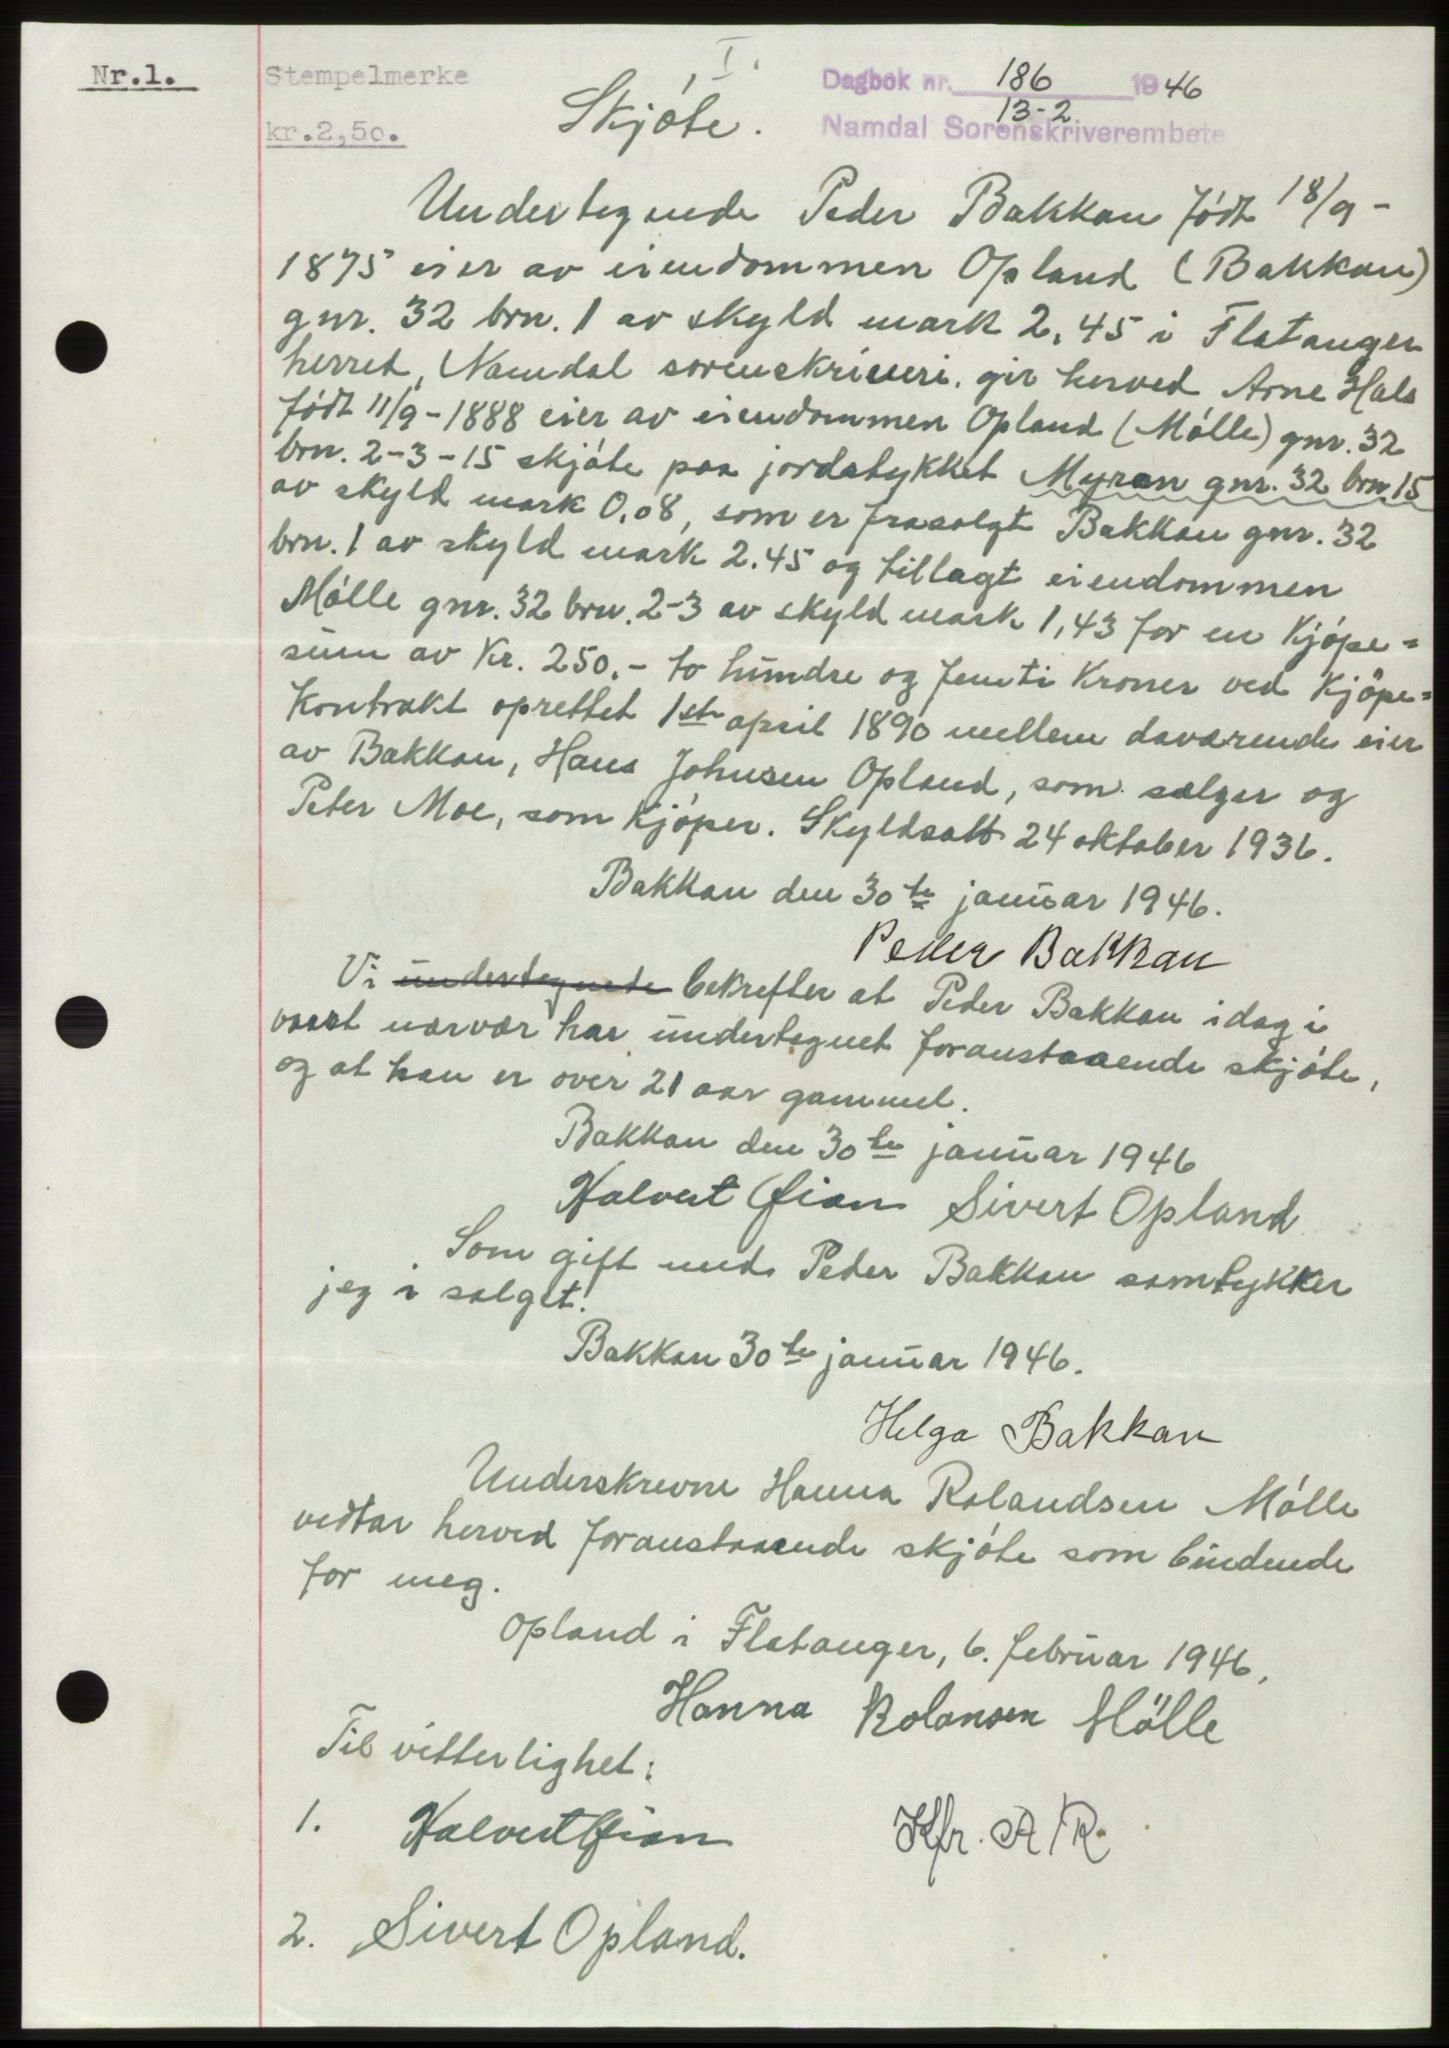 Nr.1.
Stempelmerke
kr.2,50.
I.
Dagbok nr. 186 1946
13-2
Namdal Sorenskriverembete
Skjóte.
Undertegnede Peder Bakkan født 18/9 -
1875 eier av eiendommen Opland (Bakkan)
gnr. 32 brn. 1 av skyld mark 2,45 i Flatanger
herred, Namdal sorenskriveri. gir herved Arne Hals
født 11/9 - 1888 eier av eiendommen Opland (Mólle) gnr. 32
brn. 2-3-15 skjóte paa jordstykket Myran gnr. 32 brn. 15
av skyld mark 0,08, som er frasolgt Bakkan gnr. 32
brn. 1 av skyld mark 2.45 og tillagt eiendommen
Mólle gnr. 32 brn. 2-3 av skyld mark 1,43 for en Kjópe=
sum av Kr. 250.- to hundre og femti Kroner ved Kjöpe=
Kontrakt oprettet 1ste april 1890 mellem daværende eier
av Bakkan, Hans Johnsen Opland, som sælger og
Peter Moe, som Kjóper. Skyldsatt 24 oktober 1936.
Bakkan den 30te januar 1946.
Peder Bakkan
Vi undertegnede bekrefter at Peder Bakkan idag i
vaart nærvær har undertegnet foranstaaende skjóte,
og at han er over 21 aar gammel.
Bakkan den 30te januar 1946
Halvert Øian Sivert Opland
Som gift med Peder Bakkan samtykker
jeg i salget.
Bakkan 30te januar 1946.
Helga Bakkan
Underskrevne Hanna Rolandsen Mólle
vedtar herved foranstaaende skjóte som bindende
for meg.
Opland i Flatanger, 6. februar 1946.
Hanna Rolansen Mölle
Til vitterlighet:
1. Halvert Øian
Kfr. A/R.
2. Sivert Opland.